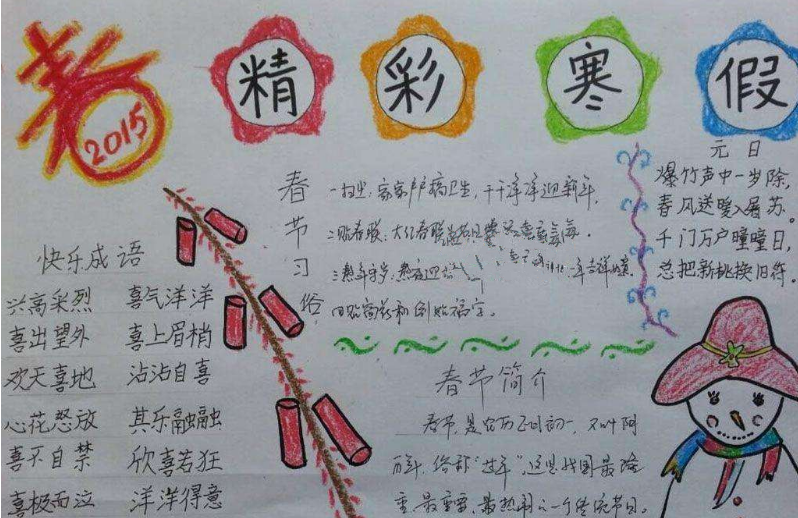 春
2015
精彩寒假
元日
爆竹声中一岁除,
春风送暖入屠苏。
千门万户曈曈日,
总把新桃换旧符。
春节习俗
一扫尘,家家户户搞卫生,干干净净迎新年,
二贴春联:大红春联
三熬年岁,
四贴窗花和倒贴福字。
快乐成语
兴高采烈 喜气洋洋
喜出望外 喜上眉梢
欢天喜地 沾沾自喜
心花怒放 其乐融融
喜不自禁 欣喜若狂
喜极而泣 洋洋得意
春节简介
春节,是农历正月初一,又叫阴
历年,俗称“过年”,这是我国最隆
重、最热闹的一个传统节日。